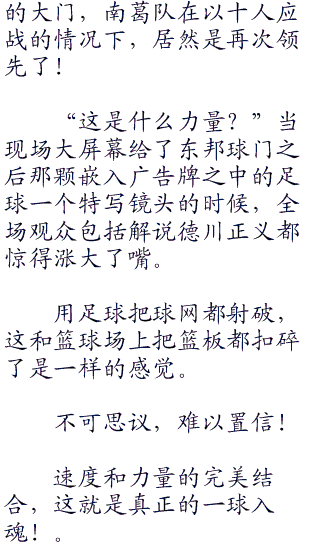 的大门，南葛队在以十人应
战的情况下，居然是再次领
先了！
“这是什么力量？”当
现场大屏幕给了东邦球门之
后那颗嵌入广告牌之中的足
球一个特写镜头的时候，全
场观众包括解说德川正义都
惊得涨大了嘴。
用足球把球网都射破，
这和篮球场上把篮板都扣碎
了是一样的感觉。
不可思议，难以置信！
速度和力量的完美结
合，这就是真正的一球入
魂！。